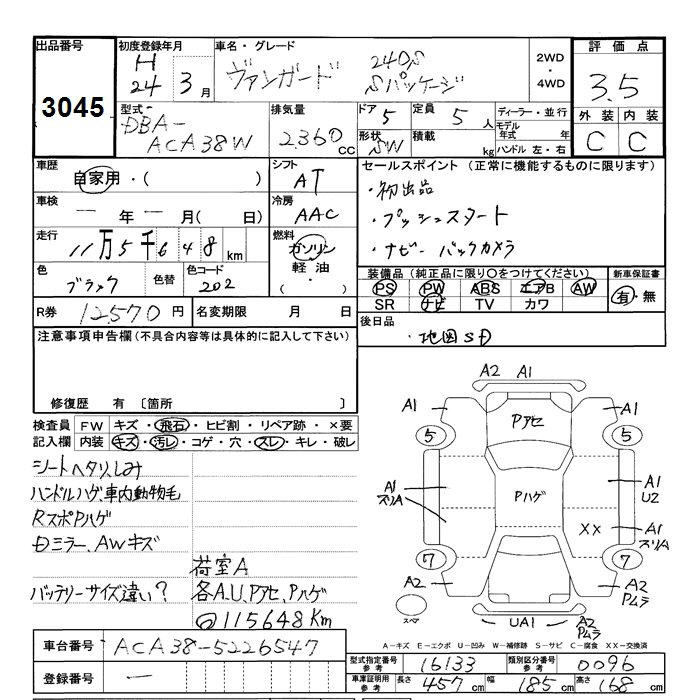 出品番号 初度登録年月 車名・グレード 評価点
3045
H 24 3 月
ヴァンガード 240S Sパッケージ
2WD ・ 4WD
3.5
型式 DBA- ACA38W
排気量 2360 CC
ドア 5 定員 5 人 ディーラー・並行
形状 SW 積載 kg モデル年式 年
ハンドル 左・右
外装 内装
C C
車歴 自家用・( )
シフト AT
セールスポイント (正常に機能するものに限ります)
・初出品
・プッシュスタート
・ナビー バックカメラ
車検 ー 年 ー 月( 日)
冷房 AAC
走行 11万5千648 km
燃料 ガソリン・軽油・( )
色 ブラック 色替 色コード 202
装備品 (純正品に限り○をつけてください) 新車保証書
PS PW ABS エアB AW 有・無
SR ナビ TV カワ
R券 12,570 円 名変期限 月 日
後日品
・地図SD
注意事項申告欄(不具合内容等は具体的に記入して下さい)
修復歴 有 〔箇所 〕
検査員 FW キズ・飛石・ヒビ割・リペア跡・×要
記入欄 内装 キズ・汚レ・コゲ・穴・スレ・キレ・破レ
シートヘタリ、しみ
ハンドルハゲ 車内動物毛
RスポPハゲ
日ミラー、AWキズ
バッテリーサイズ違い?
荷室A
各A.U.Pアセ、Pハゲ
115648Km
A2 A1
A1 Pアセ A1
5 5
A1 スリA Pハゲ A1 U2
XX A1 スリA
7 7
A2 A2 Pムラ
スペア UA1 A2 Pムラ
A－キズ E－エクボ U－凹み W－補修跡 S－サビ C－腐食 XX－交換済
車台番号 ACA38-5226547
登録番号 ー
型式指定番号 参考 16133 類別区分番号 参考 0096
車庫証明用 参考 長さ 457 cm 幅 185 cm 高さ 168 cm